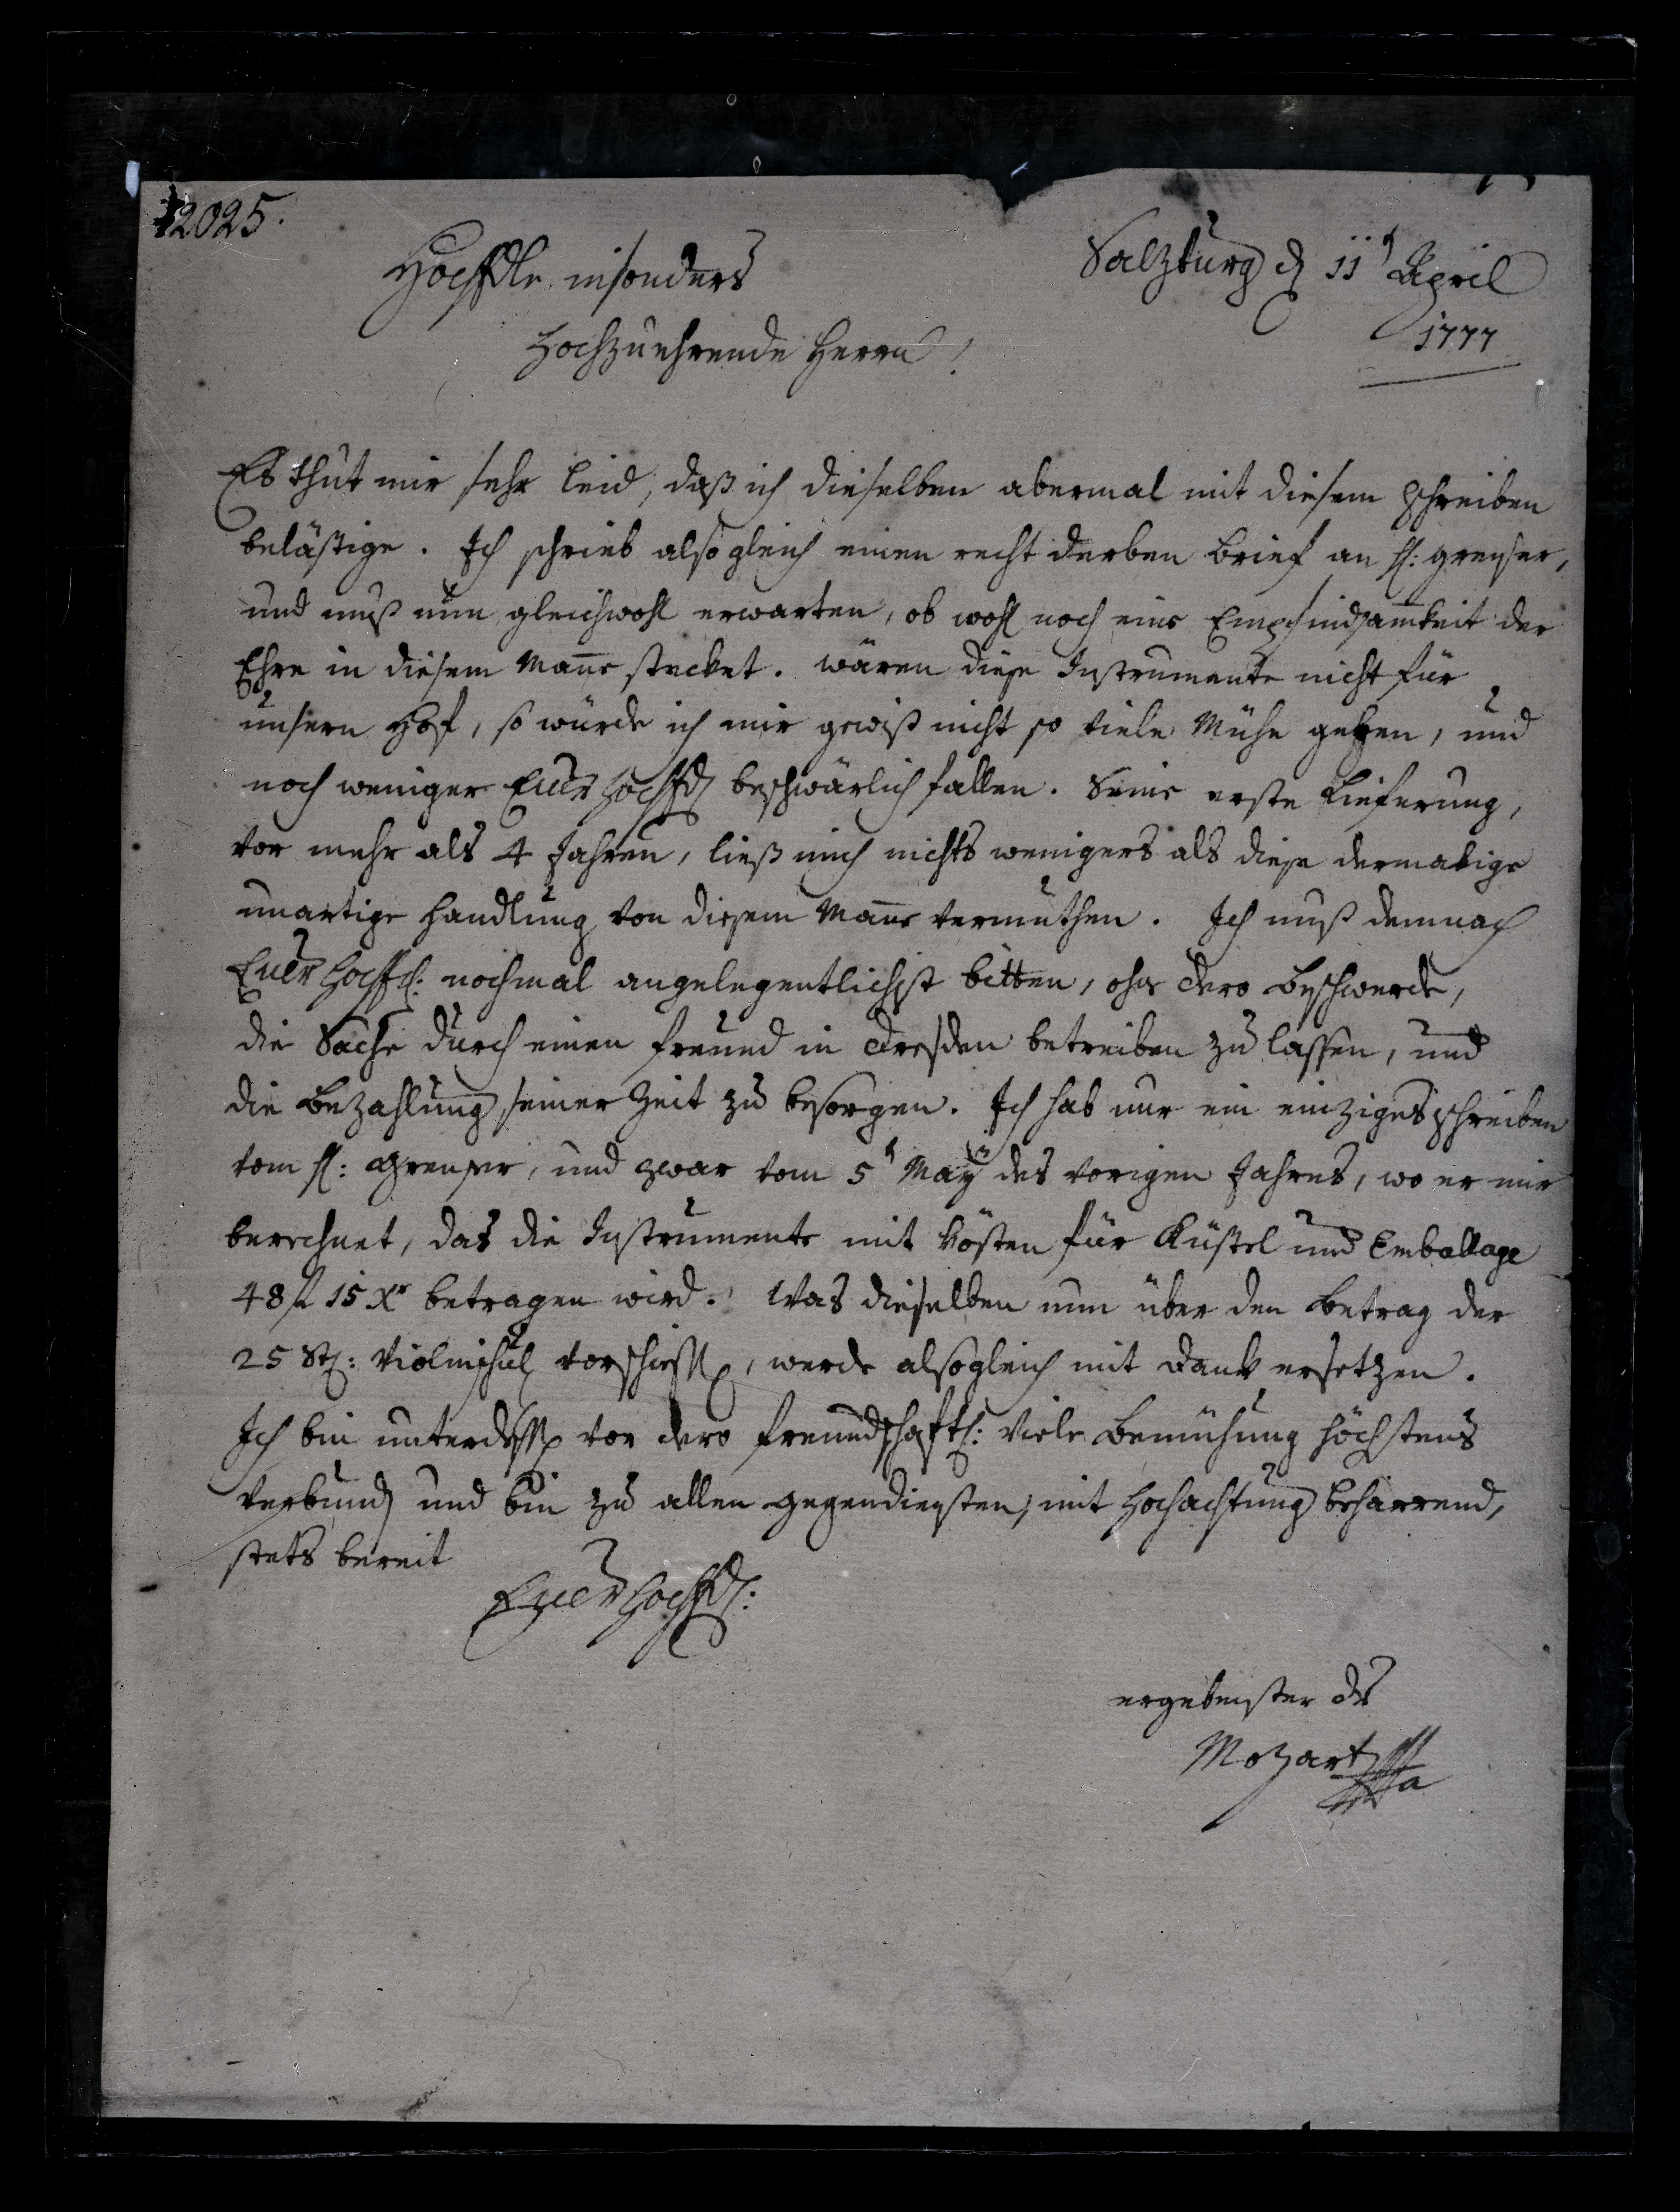 2025.
Salzburg d 11t April
1777
HochEdle insonders
Hochzuehrende Herrn!
Es thut mir sehr leid, daß ich dieselben abermal mit diesem schreiben
belästige. Ich schrieb alsogleich einen recht derben Brief an H: grenser,
und muß nun gleichwohl erwarten, ob wohl noch eine Empfindsamkeit der
Ehre in diesem Mañe stecket. wären diese Instrumente nicht für
unsern Hof, so würde ich mir gewiß nicht so viele Mühe geben, und
noch weniger Euer HochEd beschwärlich fallen. Seine erste Lieferung,
vor mehr als 4 Jahren, ließ mich nichts wenigers als diese dermalige
unartige Handlung von diesem Mañe vermuthen. Ich muß demnach
Euer HochEd: nochmal angelegentlichst bitten, ohne dero Beschwerde,
die Sache durch einen freund in Dresden betreiben zu lassen, und
die Bezahlung seiner Zeit zu besorgen. Ich hab nur ein einziges schreiben
vom H: Grenser, und zwar vom 5t May des vorigen Jahres, wo er mir
berechnet, das die Instrumente mit kösten für Küstel und Emballage
48 f 15 Xr betragen wird. Was dieselben nun über den Betrag der
25 St: Violinschul vorschiessen, werde alsogleich mit Dank ersetzen.
Ich bin unterdessen vor dero freundschaftl: viele Bemühung höchstens
verbunden und bin zu allen gegendiensten, mit Hochachtung beharrend,
stets bereit
Euer HochEd:
ergebenster dr
Mozart